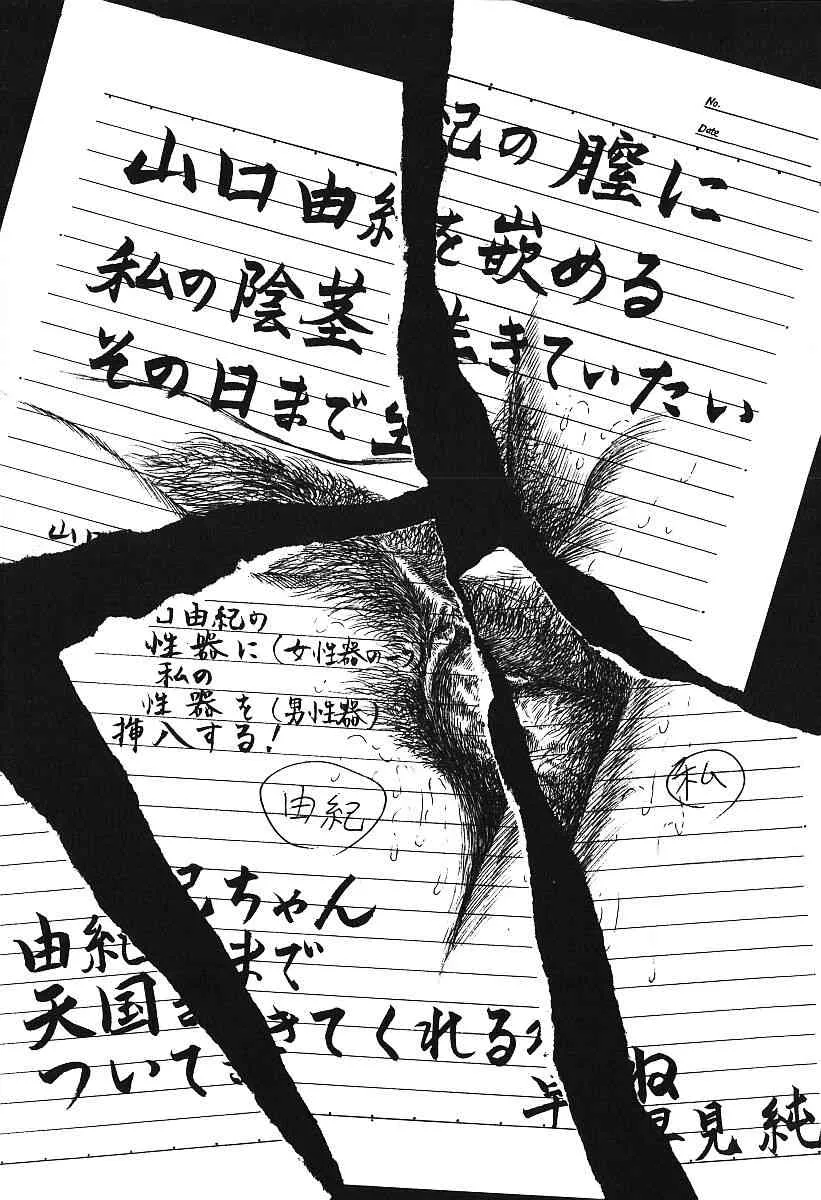 No.
Date
山口由紀の膣に
私の陰茎を嵌める
その日まで生きていたい
山口
口由紀の
性器に（女性器の一つ）
私の
性器を（男性器）
挿入する！
由紀
私
紀ちゃん
由紀 まで
天国
ついて きてくれる
ね
早見純